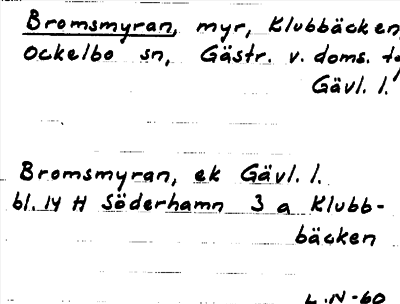 Bromsmyran, myr, Klubbäcken,
Ockelbo sn, Gästr. v. doms. tg
Gävl. l.
Bromsmyran, ek Gävl. l.
bl. 14 H Söderhamn 3 a Klubb-
bäcken
L.N-60